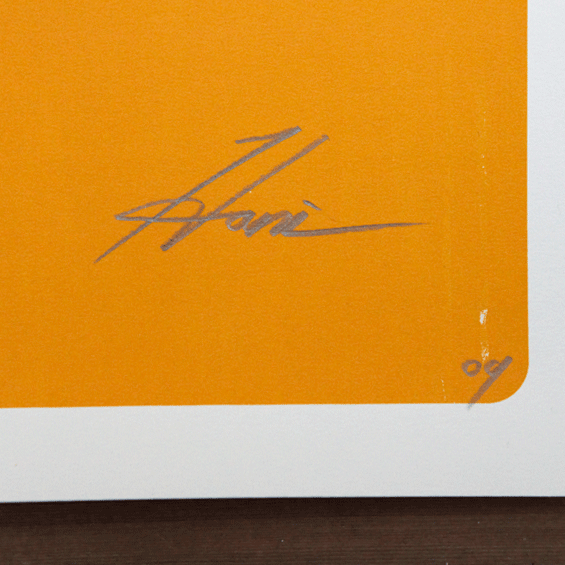 Hani
09